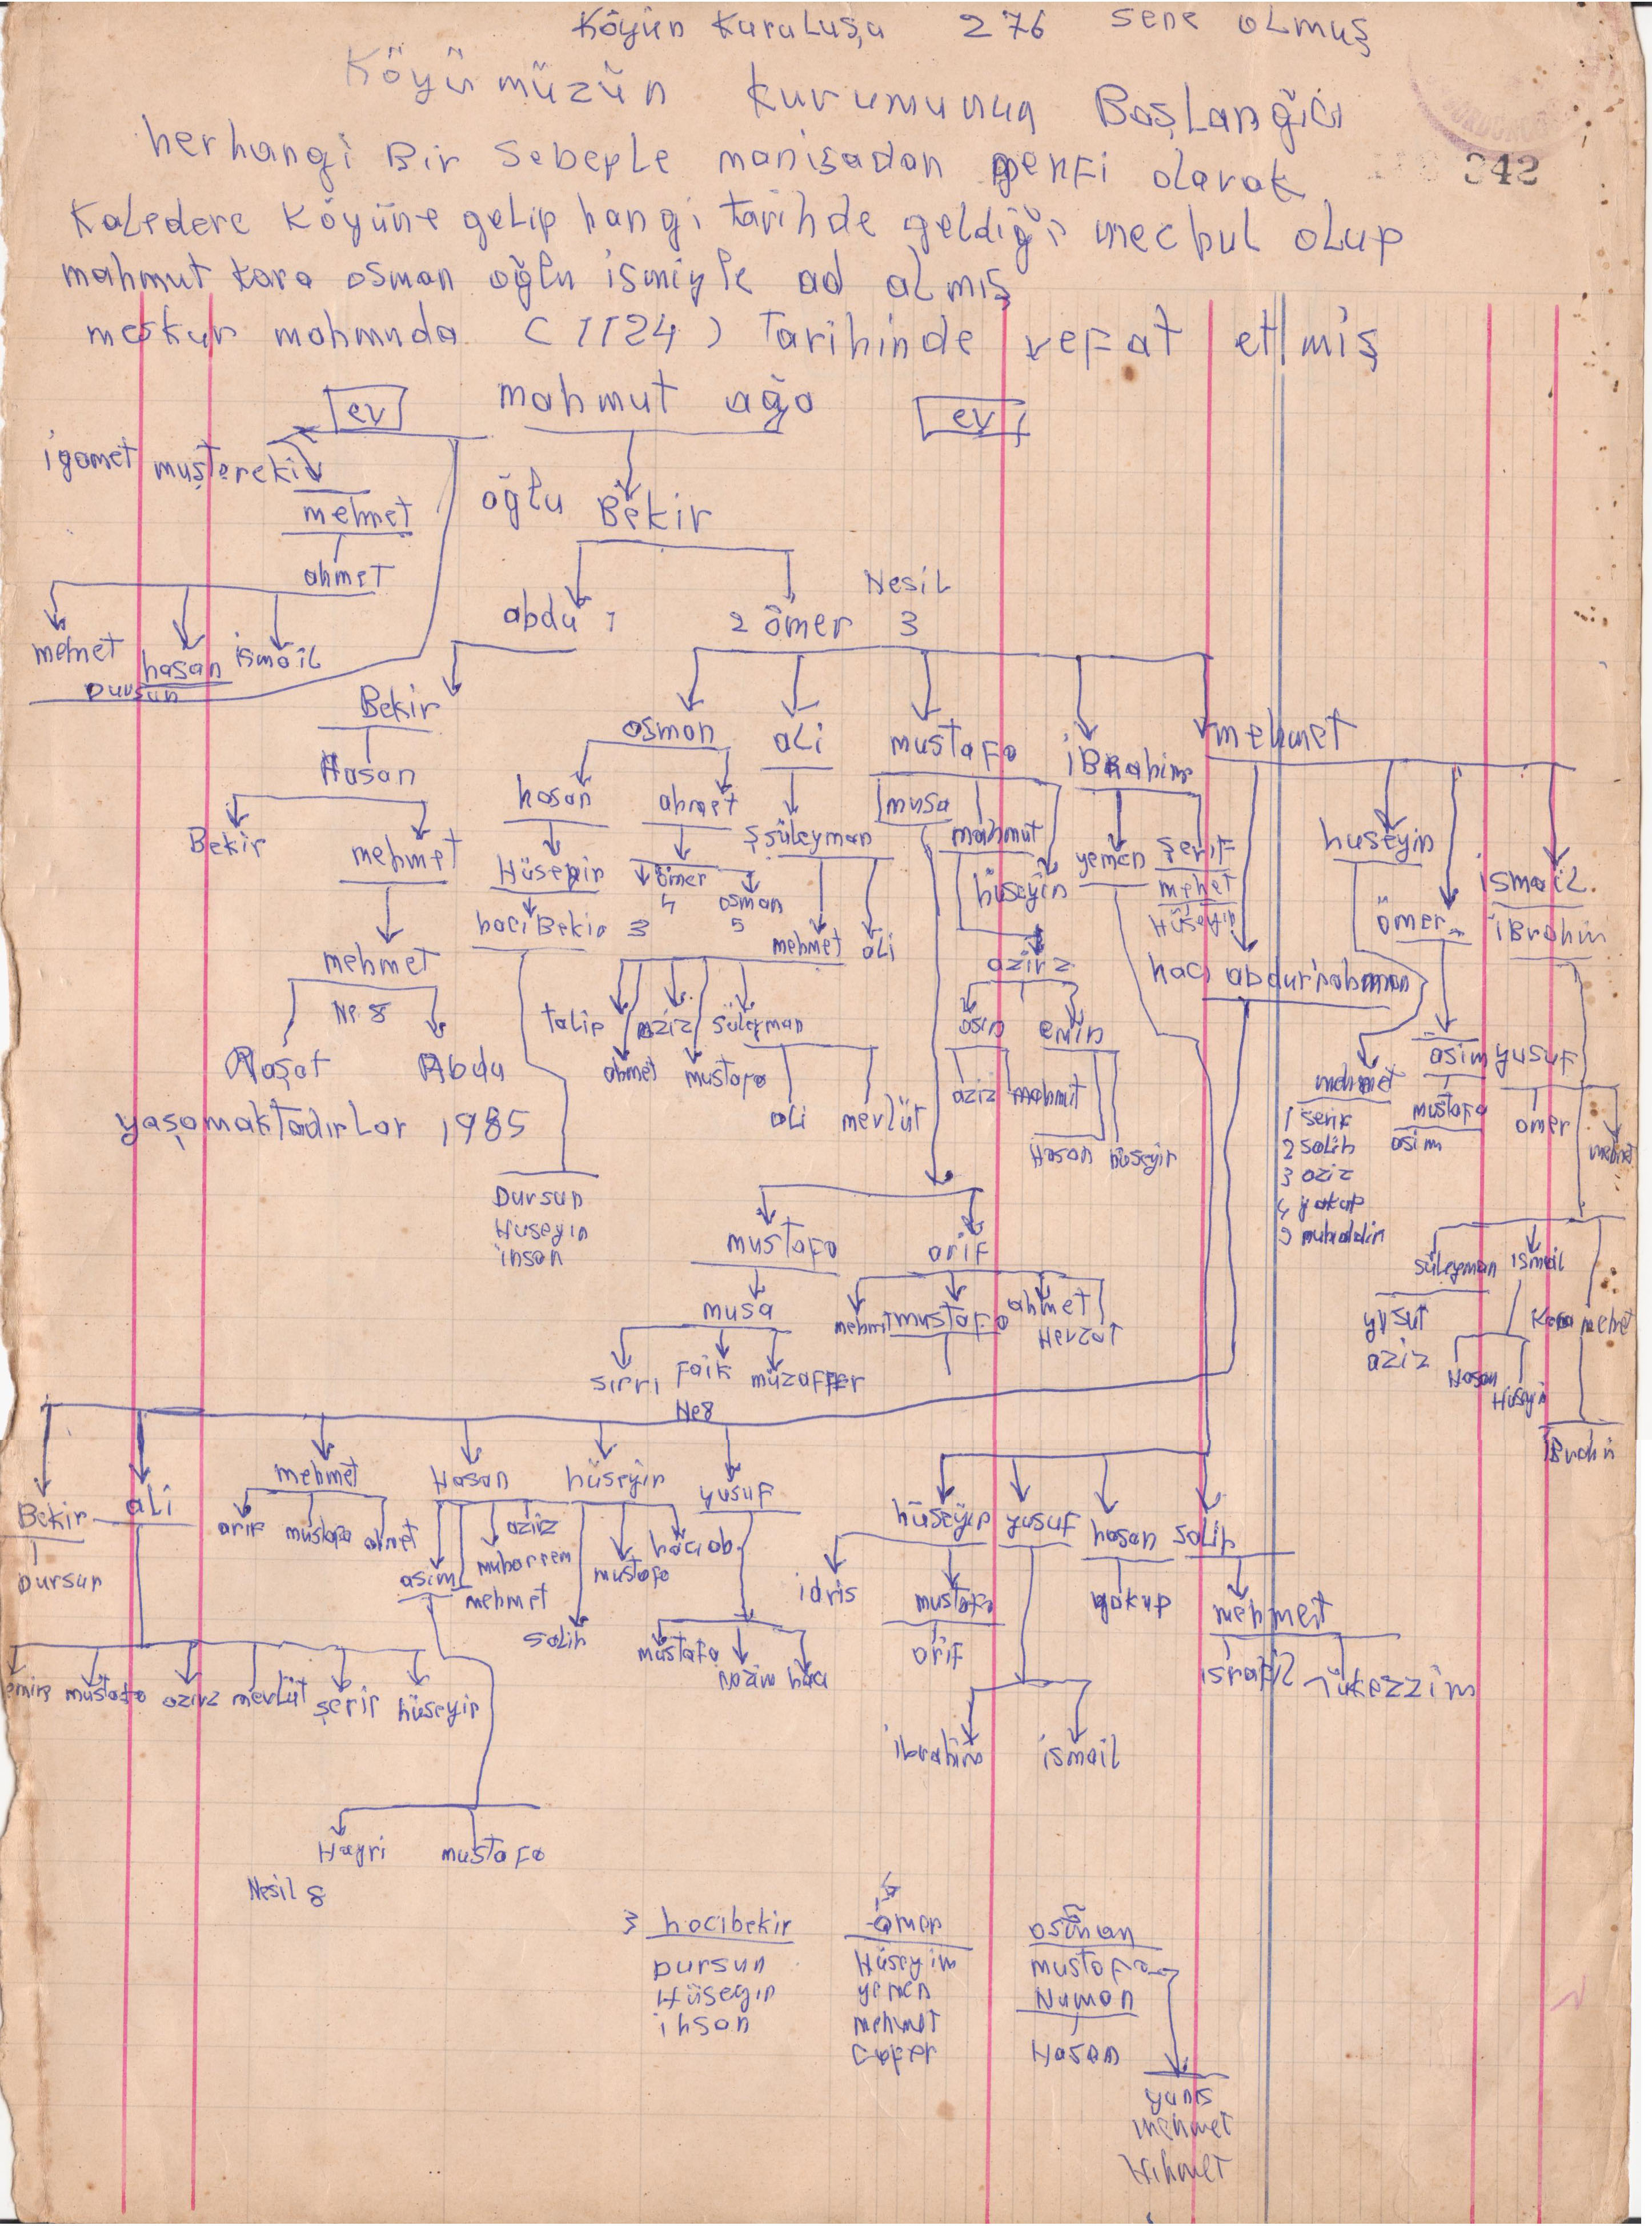 Köyün Kuruluşu 276 sene olmuş
Köyümüzün kurumunun Başlangıcı
342
herhangi Bir sebeple manisadan menfi olarak
Kaledere Köyüne gelip hangi tarihde geldiği mechul olup
mahmut kara osman oğlu ismiyle ad almış
meskur mahmuda (1124) Tarihinde vefat etmiş
ev mahmut ağa ev
igamet muştereki
mehmet oğlu Bekir
ahmet
Nesil
abdu 1 2 ömer 3
mehmet hasan ismail
Dursun
Bekir osman ali mustafa iBrahim mehmet
Hasan
hasan ahmet musa
Bekir mehmet süleyman mahmut yemen şerif huseyin
Hüseyin ömer osman hüseyin mehet ismail
4 5 Hüseyin
haci Bekir 3 mehmet ali ömer iBrahim
mehmet aziz haci abdurrahman
Ne 8
talip aziz süleyman asim emin
Abdu ahmet mustafa asim yusuf
aziz mahmut mehmet
yaşamaktadırlar 1985 ali mevlüt 1 şerif mustafa ömer mehmet
Hasan hüseyin 2 salih asim
3 aziz
Dursun 4 yakup
Huseyin
insan
mustafa arif süleyman ismail
musa mehmet mustafa ahmet
Nevzat
yusuf Kara mehet
aziz
sirri Faik müzaffer Hasan Hüseyin
Ne8
iBrahi
mehmet Hasan hüseyin yusuf
Bekir ali hüseyin yusuf hasan salih
arif mustafa ahmet aziz haciab
Dursun asim muharrem mustafa
mehmet idris mustafa yakup mehmet
salih
mustafa Nazim haci arif israfil
emin mustafa aziz mevlüt şerif hüseyin
ibrahim ismail
Hayri mustafa
Nesil 8
4 5
3 hacibekir ömer osman
Dursun Hüseyin mustafa
Hüseyin yemen Numan
ihsan mehmet
Cafer Hasan
yunis
mehmet
Hikmet